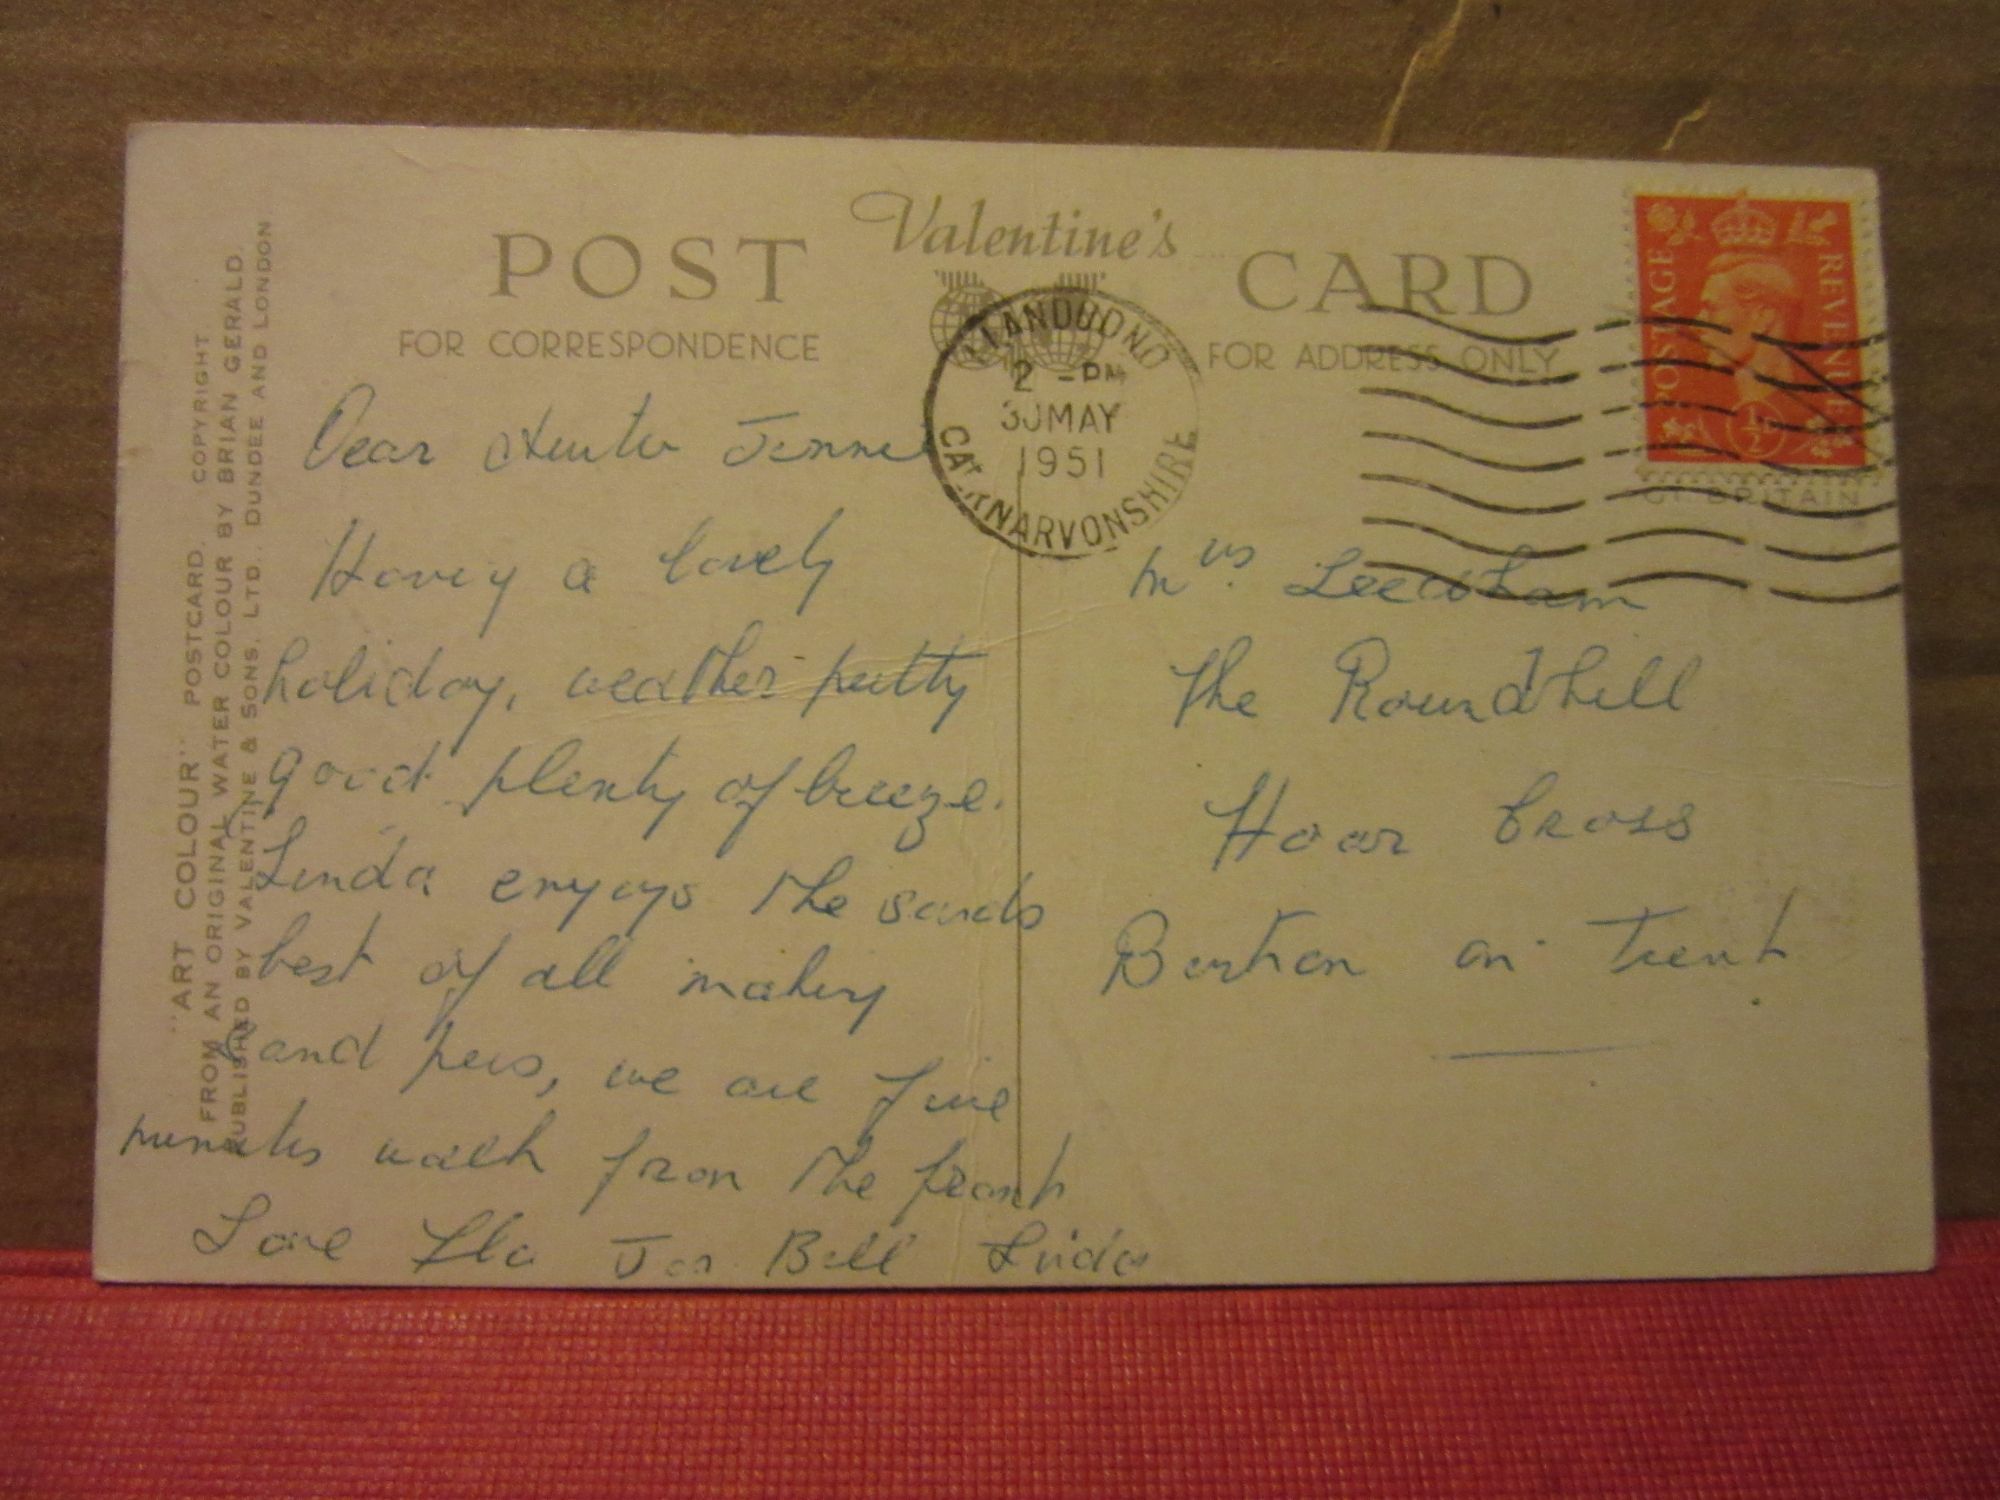 POST Valentine's CARD
FOR CORRESPONDENCE FOR ADDRESS ONLY
POSTAGE REVENUE
1/2
GT. BRITAIN
LLANDUDNO
2 - PM
30 MAY
1951
CAERNARVONSHIRE
Dear
Having a lovely
holiday, weather pretty
good plenty of breeze.
Linda enjoys the sands
best of all making
sand pies, we are five
minutes walk from the front
Love Joe Bill Linda
Mrs.
The Roundhill
Hoar Cross
Burton on Trent
"ART COLOUR" POSTCARD. COPYRIGHT
FROM AN ORIGINAL WATER COLOUR BY BRIAN GERALD.
PUBLISHED BY VALENTINE & SONS, LTD., DUNDEE AND LONDON